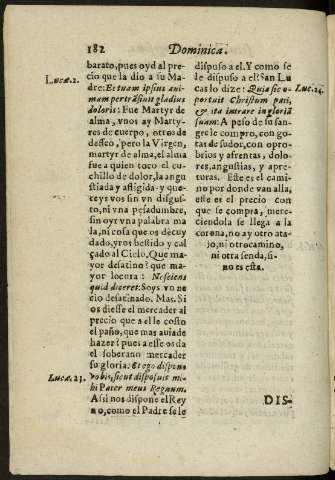 182 Dominica.
barato, pues oyd al pre-
cio que la dio a su Ma-
Lucæ. 2.
dre: Et tuam ipsius ani-
mam pertrāsiuit gladius
doloris: Fue Martyr de
alma, vnos ay Marty-
res de cuerpo, otros de
desseo, pero la Virgen,
martyr de alma, el alma
fue a quien toco el cu-
chillo de dolor, la angu
stiada y afligida. y que-
reys vos sin vn disgus-
to, ni vna pesadumbre,
sin oyr vna palabra ma
la, ni cosa que os dè cuy
dado, yros vestido y cal
çado al Cielo, Que ma-
yor desatino? que ma-
yor locura: Nesciens
quid diceret: Soys vn ne
cio desatinado. Mas. Si
os diesse el mercader al
precio que a el le costo
el paño, que mas auia de
hazer? pues a esse os da
el soberano mercader
su gloria: Et ego dispono
Lucæ. 23.
vobis, sicut disposuit mi-
hi Pater meus Regnum.
Assi nos dispone el Rey
no, como el Padre se le
dispuso a el. Y como se
le dispuso a el? San Lu
cas lo dize: Quia sic o-
Luc. 24.
portuit Christum pati,
& ita intrare in gloriā
suam: A peso de su san-
gre le compro, con go-
tas de sudor, con opro-
brios y afrentas, dolo-
res, angustias, y apre-
turas. Este es el cami-
no por donde van alla,
este es el precio con
que se compra, mere-
ciendola se llega a la
corona, no ay otro ata-
jo, ni otro camino,
ni otra senda, si-
no es esta.
DIS-